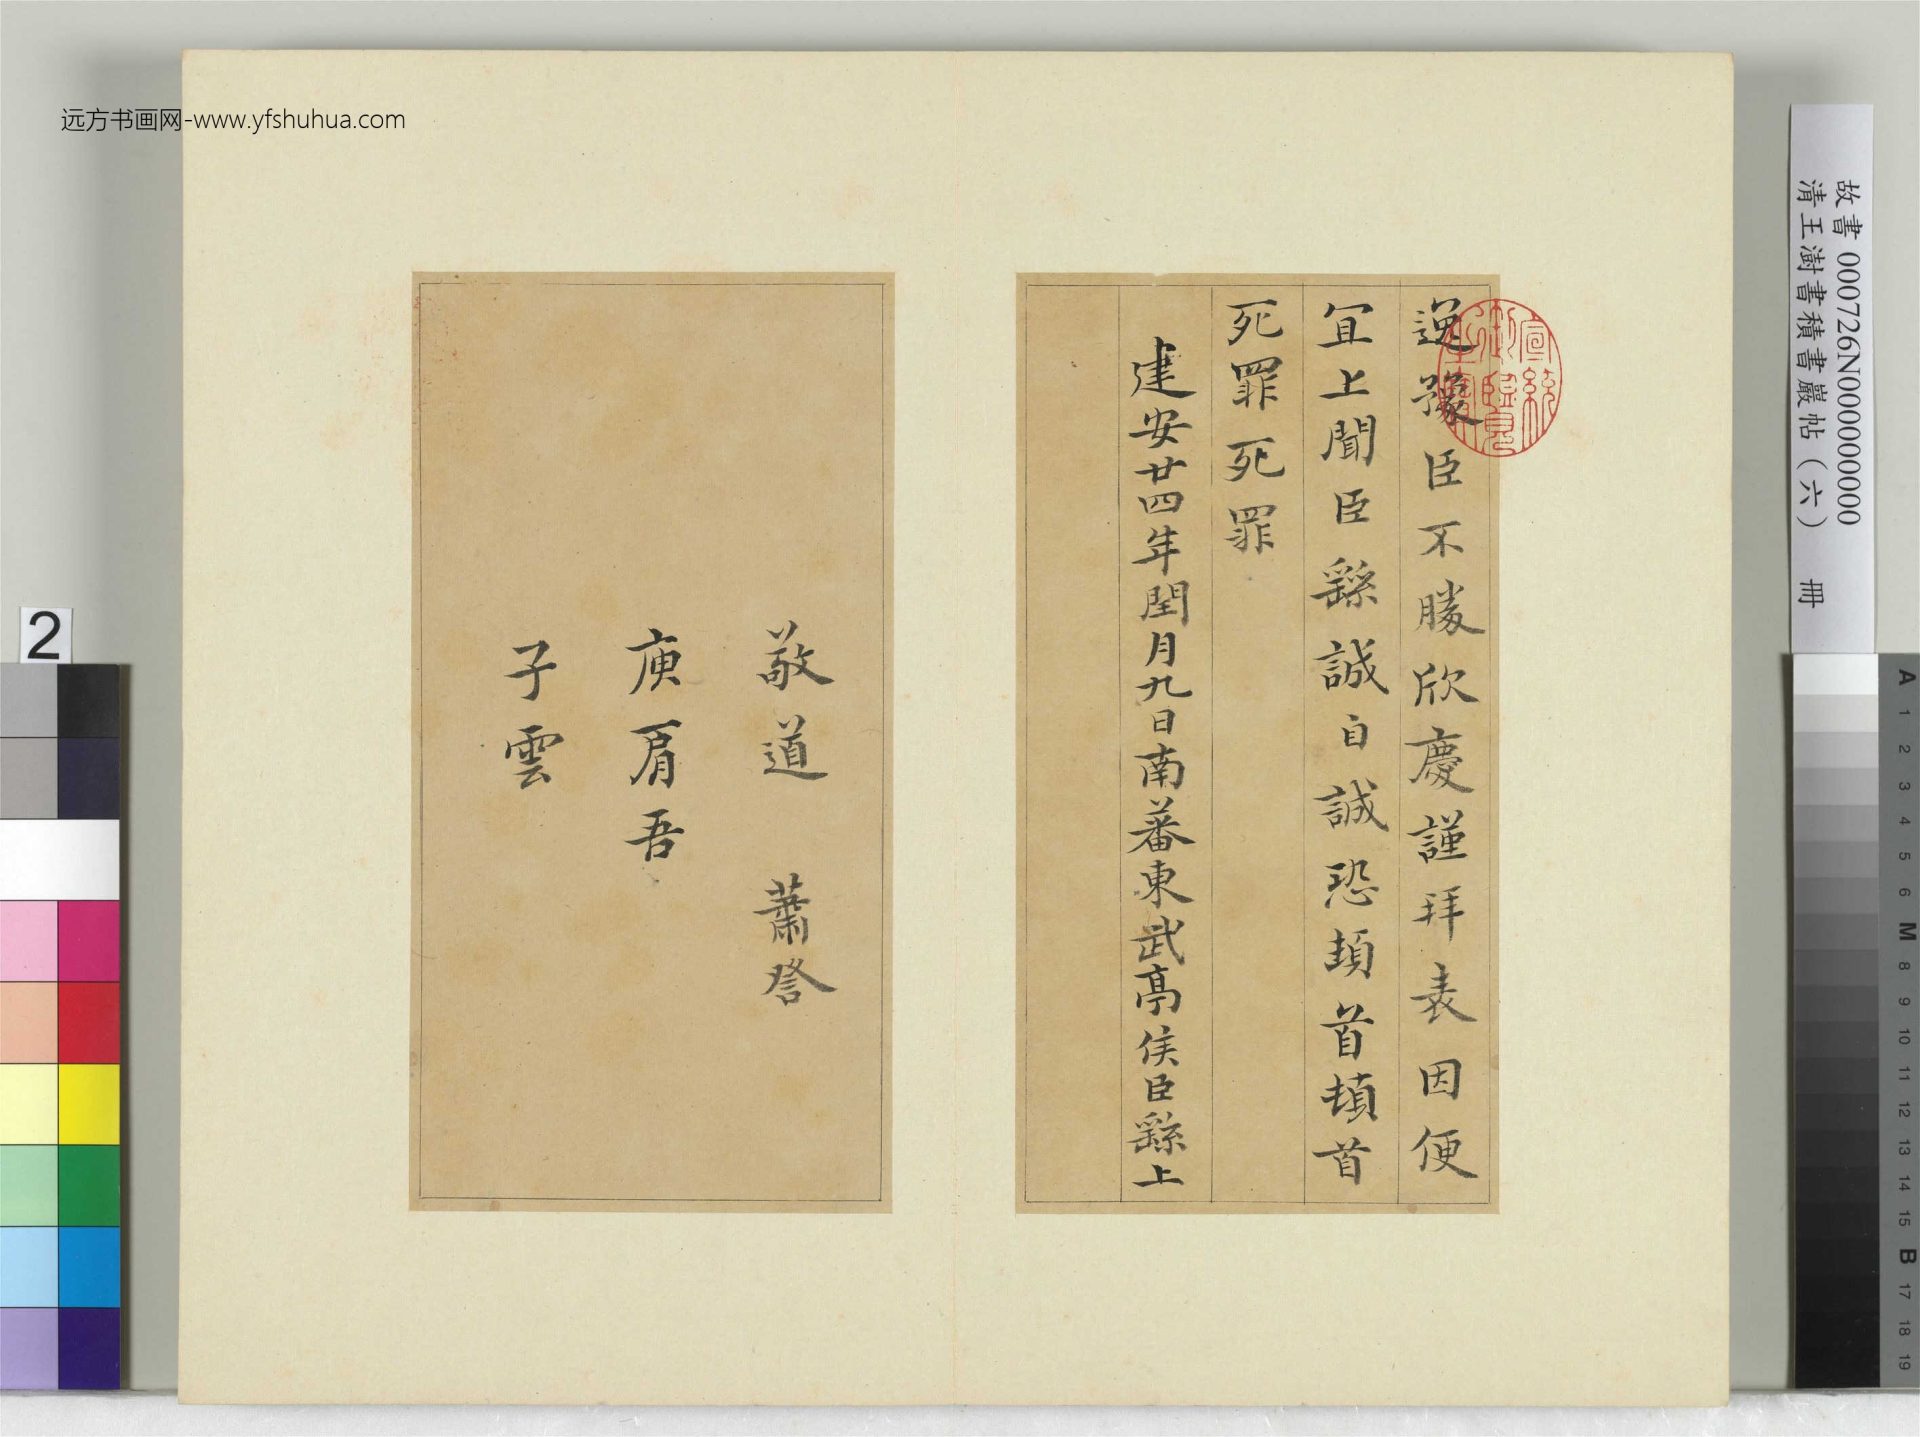 远方书画网-www.yfshuhua.com
逸豫臣不勝欣慶謹拜表因便
宜上聞臣繇誠自誠恐頓首頓首
死罪死罪
建安廿四年閏月九日南蕃東武亭侯臣繇上
敬道 蕭詧
庾肩吾
子雲
宣統御覽之寶
故書 000726N000000000
清王澍書積書巖帖（六） 冊
2
A
1
2
3
4
5
6
M
8
9
10
11
12
13
14
15
B
17
18
19